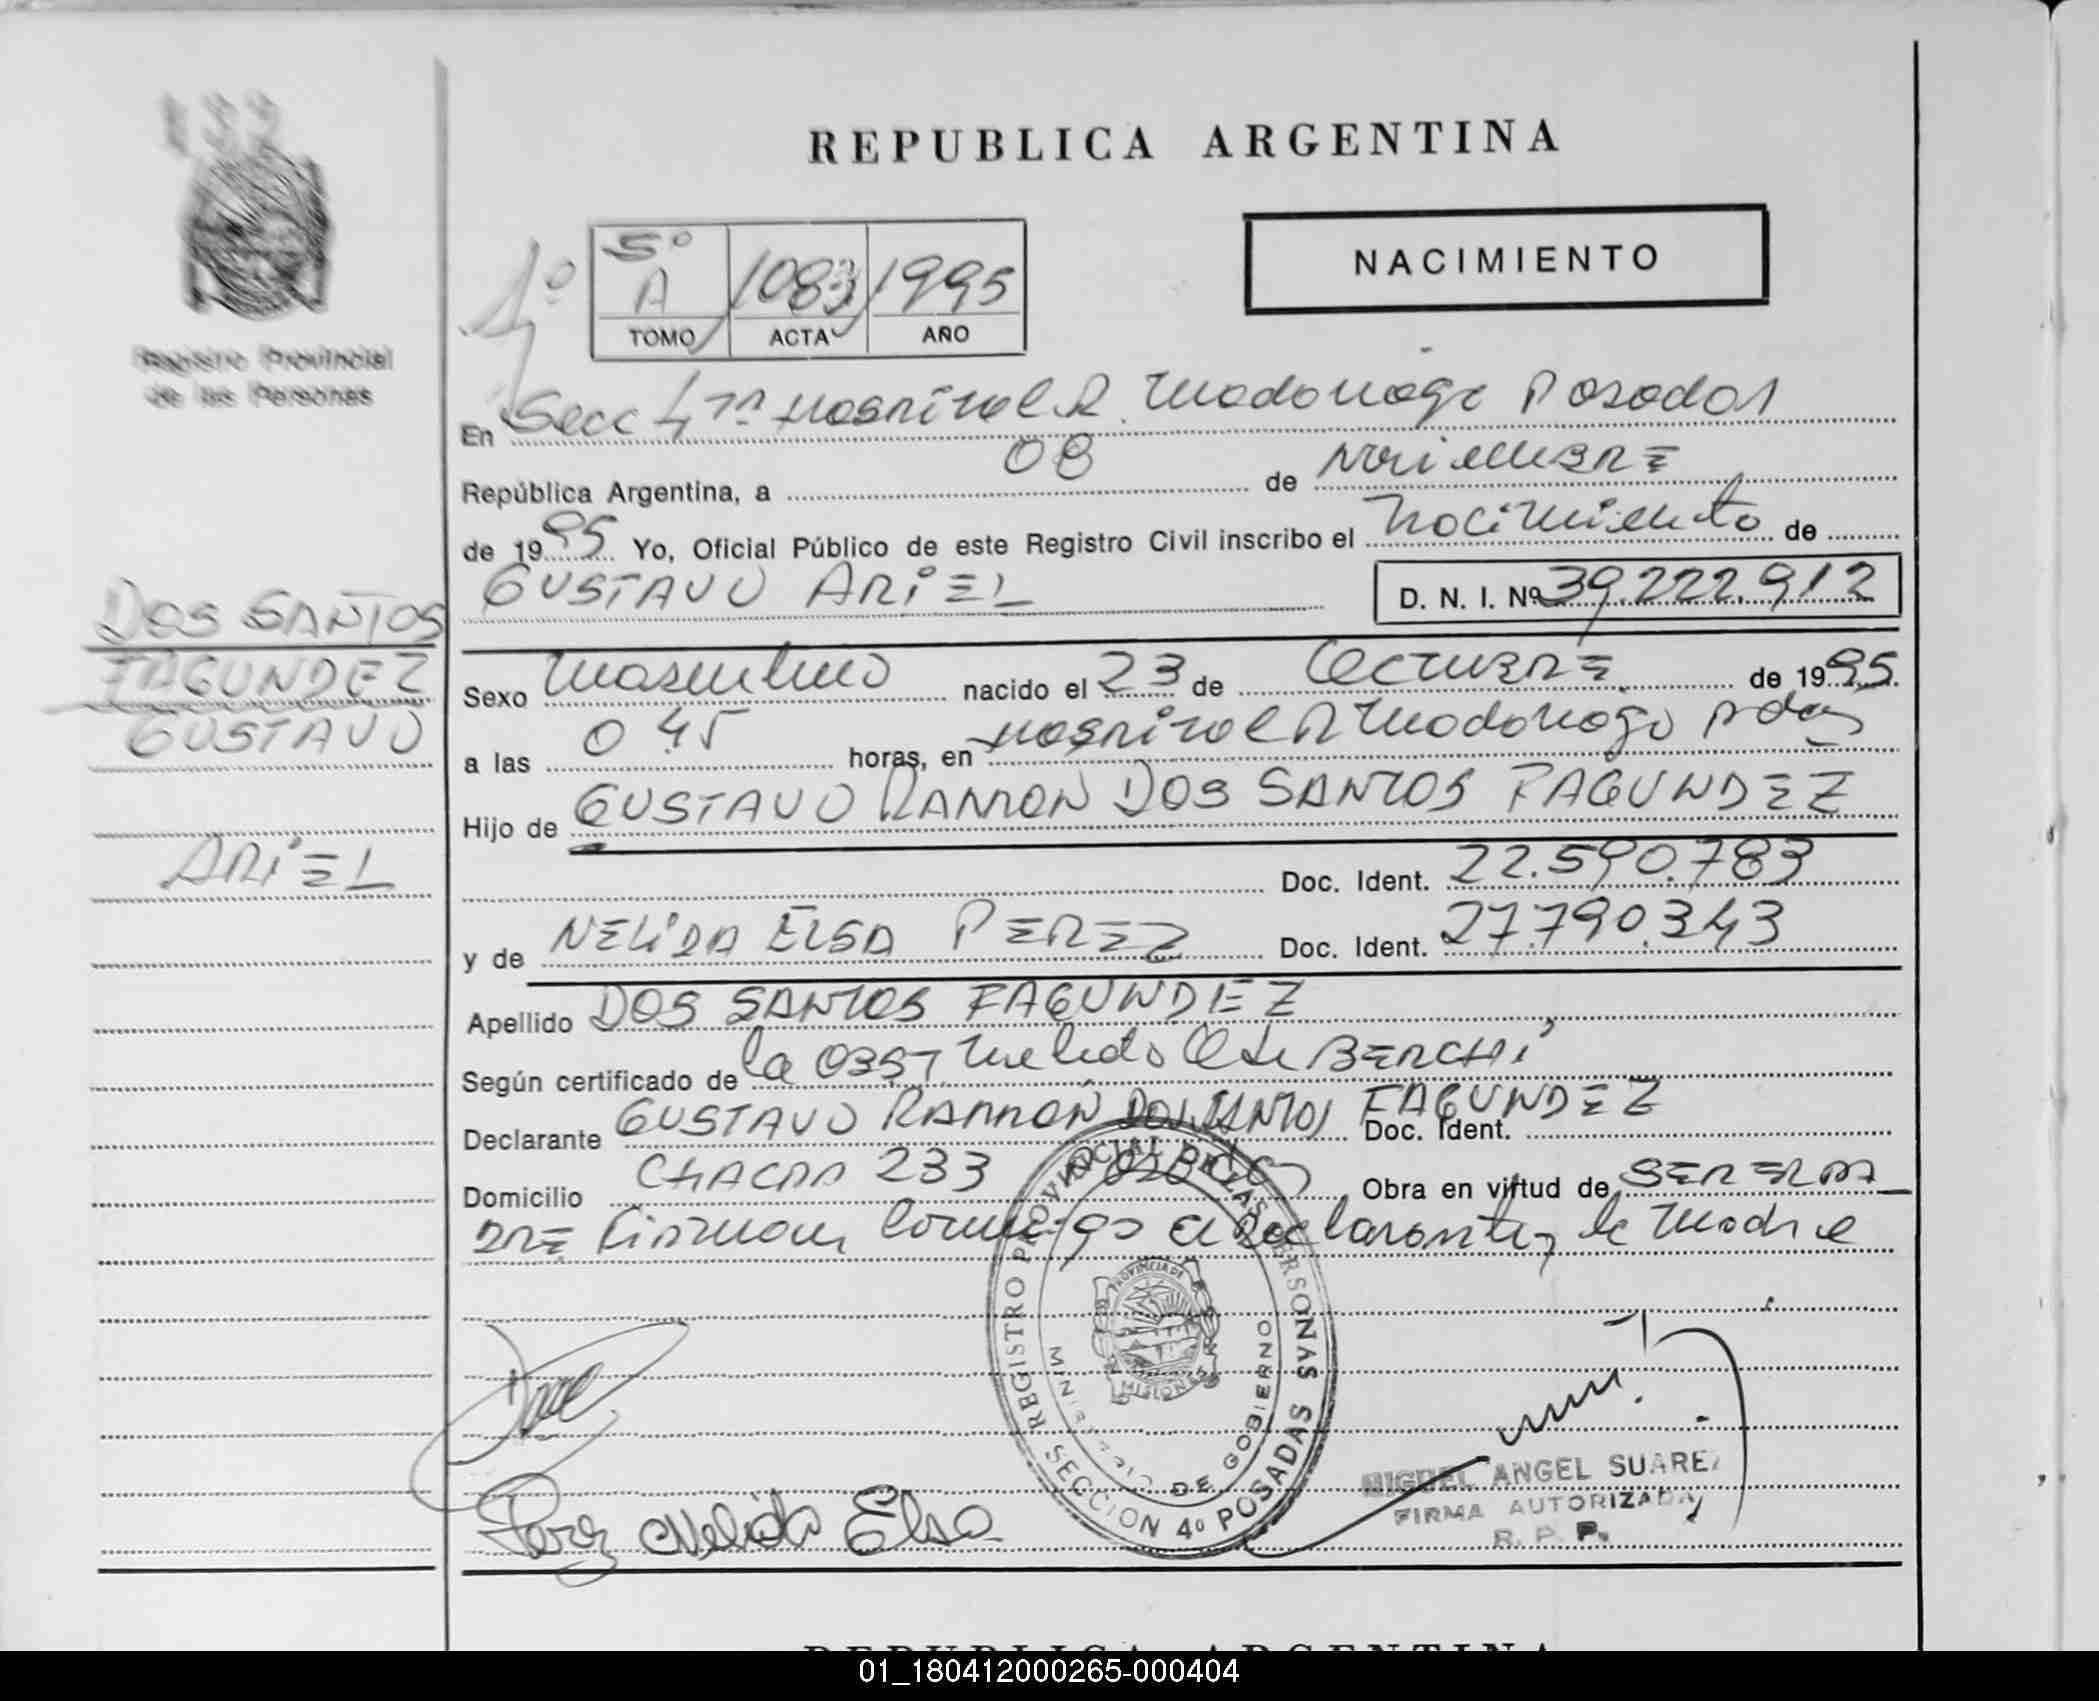 REPUBLICA ARGENTINA
NACIMIENTO
Registro Provincial
de las Personas
1º
5º
A 1083 1995
TOMO ACTA AÑO
En Secc 4ta Hospital R. Madariaga Posadas
República Argentina, a 08 de Noviembre
de 1995 Yo, Oficial Público de este Registro Civil inscribo el Nacimiento de
GUSTAVO ARIEL D. N. I. Nº 39.222.912
DOS SANTOS
FAGUNDEZ
GUSTAVO
ARIEL
Sexo Masculino nacido el 23 de Octubre de 1995
a las 0 45 horas, en Hospital R Madariaga Pdas
Hijo de GUSTAVO RAMON DOS SANTOS FAGUNDEZ
Doc. Ident. 22.590.783
y de NELIDA ELSA PEREZ Doc. Ident. 27.790.343
Apellido DOS SANTOS FAGUNDEZ
Según certificado de la Obst
Declarante GUSTAVO RAMÓN DOS SANTOS FAGUNDEZ
Doc. Ident.
Domicilio CHACRA 233 Posadas Obra en virtud de SER EL PA
DRE Firman conmigo el declarante y la Madre
REGISTRO PROVINCIAL DE LAS PERSONAS
SECCION 4º POSADAS
MINISTERIO DE GOBIERNO
PROVINCIA DE
MISIONES
Perez Nelida Elsa
MIGUEL ANGEL SUAREZ
FIRMA AUTORIZADA
R. P. P.
REPUBLICA ARGENTINA
01_180412000265-000404